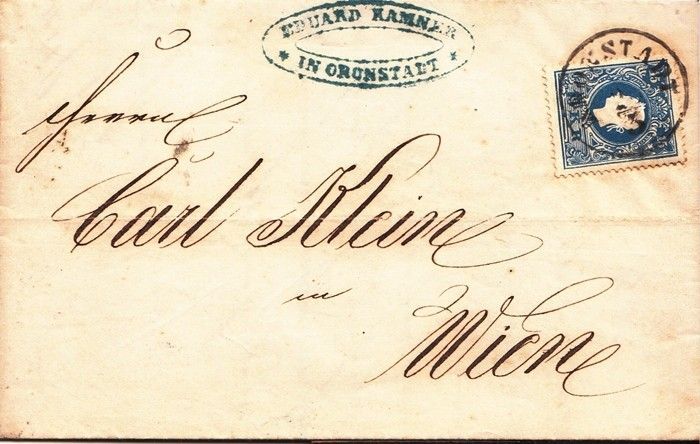 EDUARD KAMNER
* IN CRONSTADT *
Herrn
Carl Klein
in
Wien